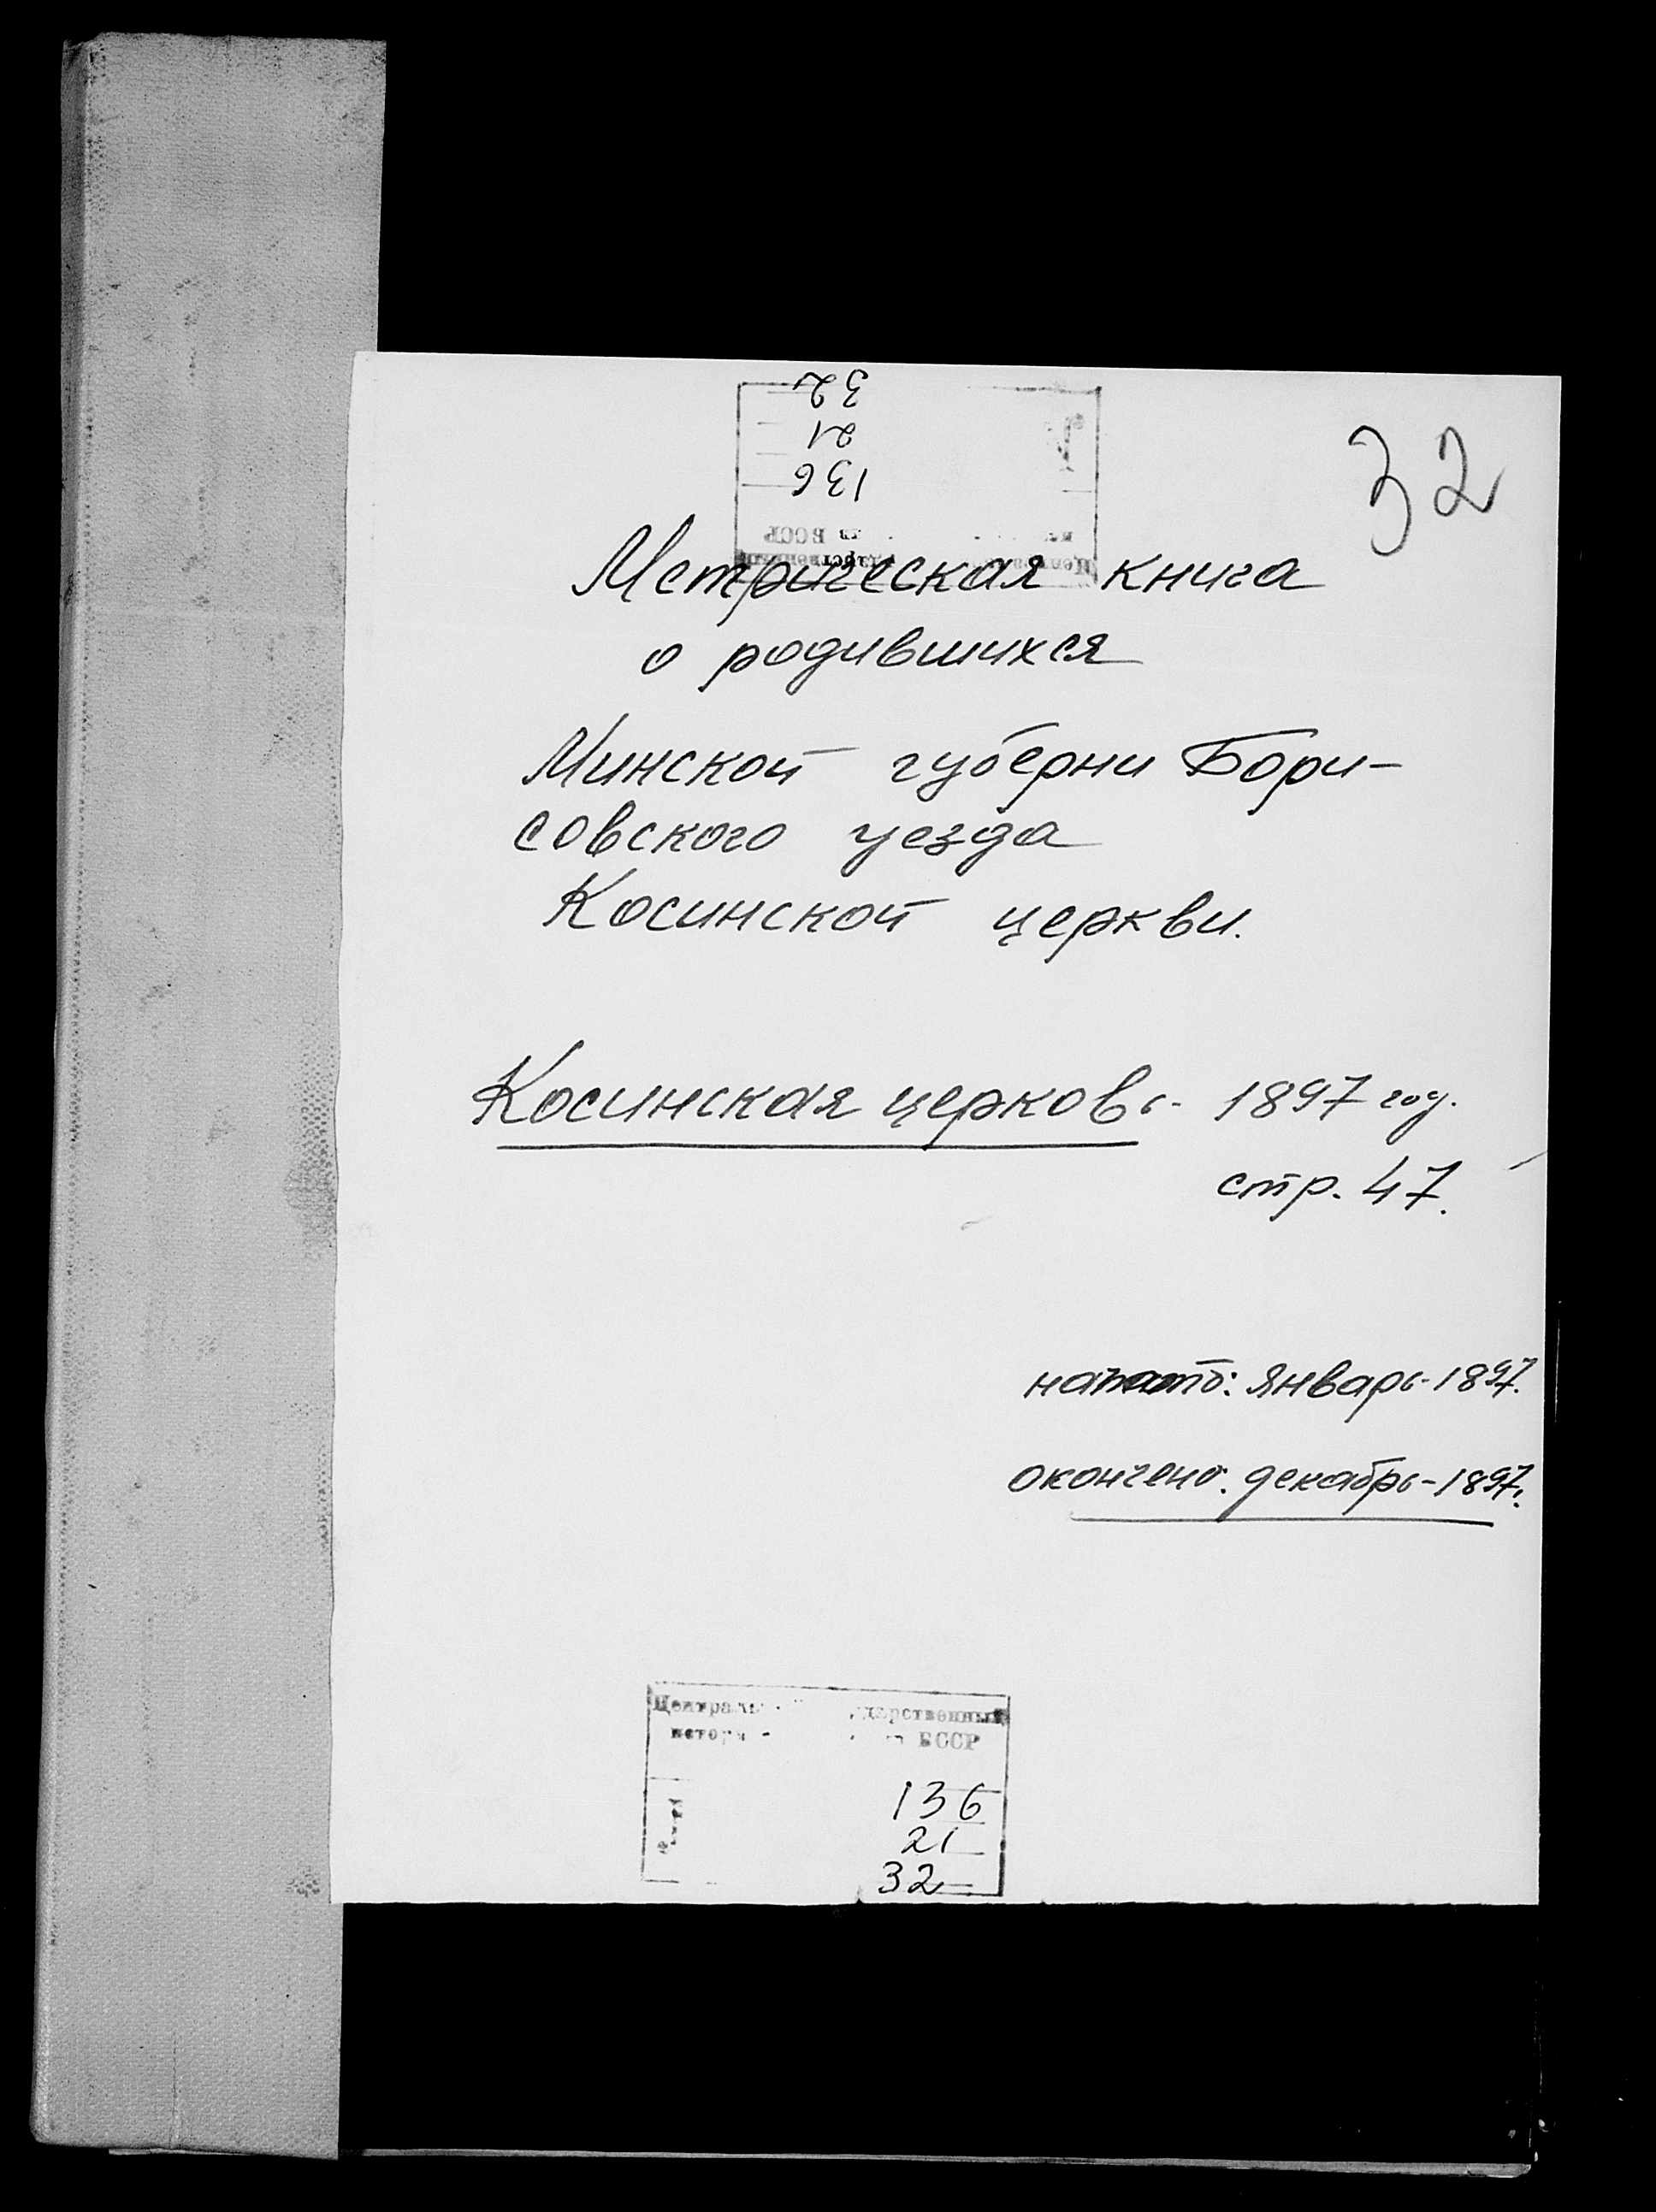 32
21
136
32
Метрическая книга
о родившихся
Минской губерни Бори-
совского уезда
Косинской церкви.
Косинская церковь - 1897 год.
стр. 47.
начато: январь - 1897.
окончено: декабрь - 1897.
БССР
136
21
32